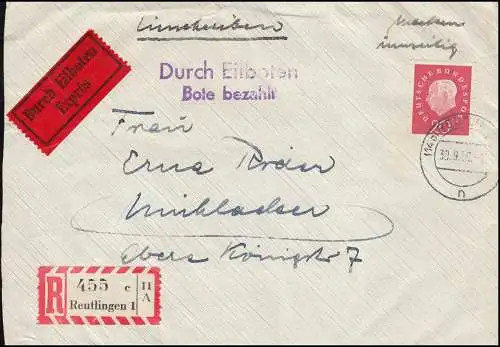 Einschreiben
Marken
inwendig
Durch Eilboten
Exprès
Durch Eilboten
Bote bezahlt
DEUTSCHE BUNDESPOST
30.9.
n
Frau
Erna Röder
Mühlacker
Obere Königstr 7
R
455 c
II
A
Reutlingen 1